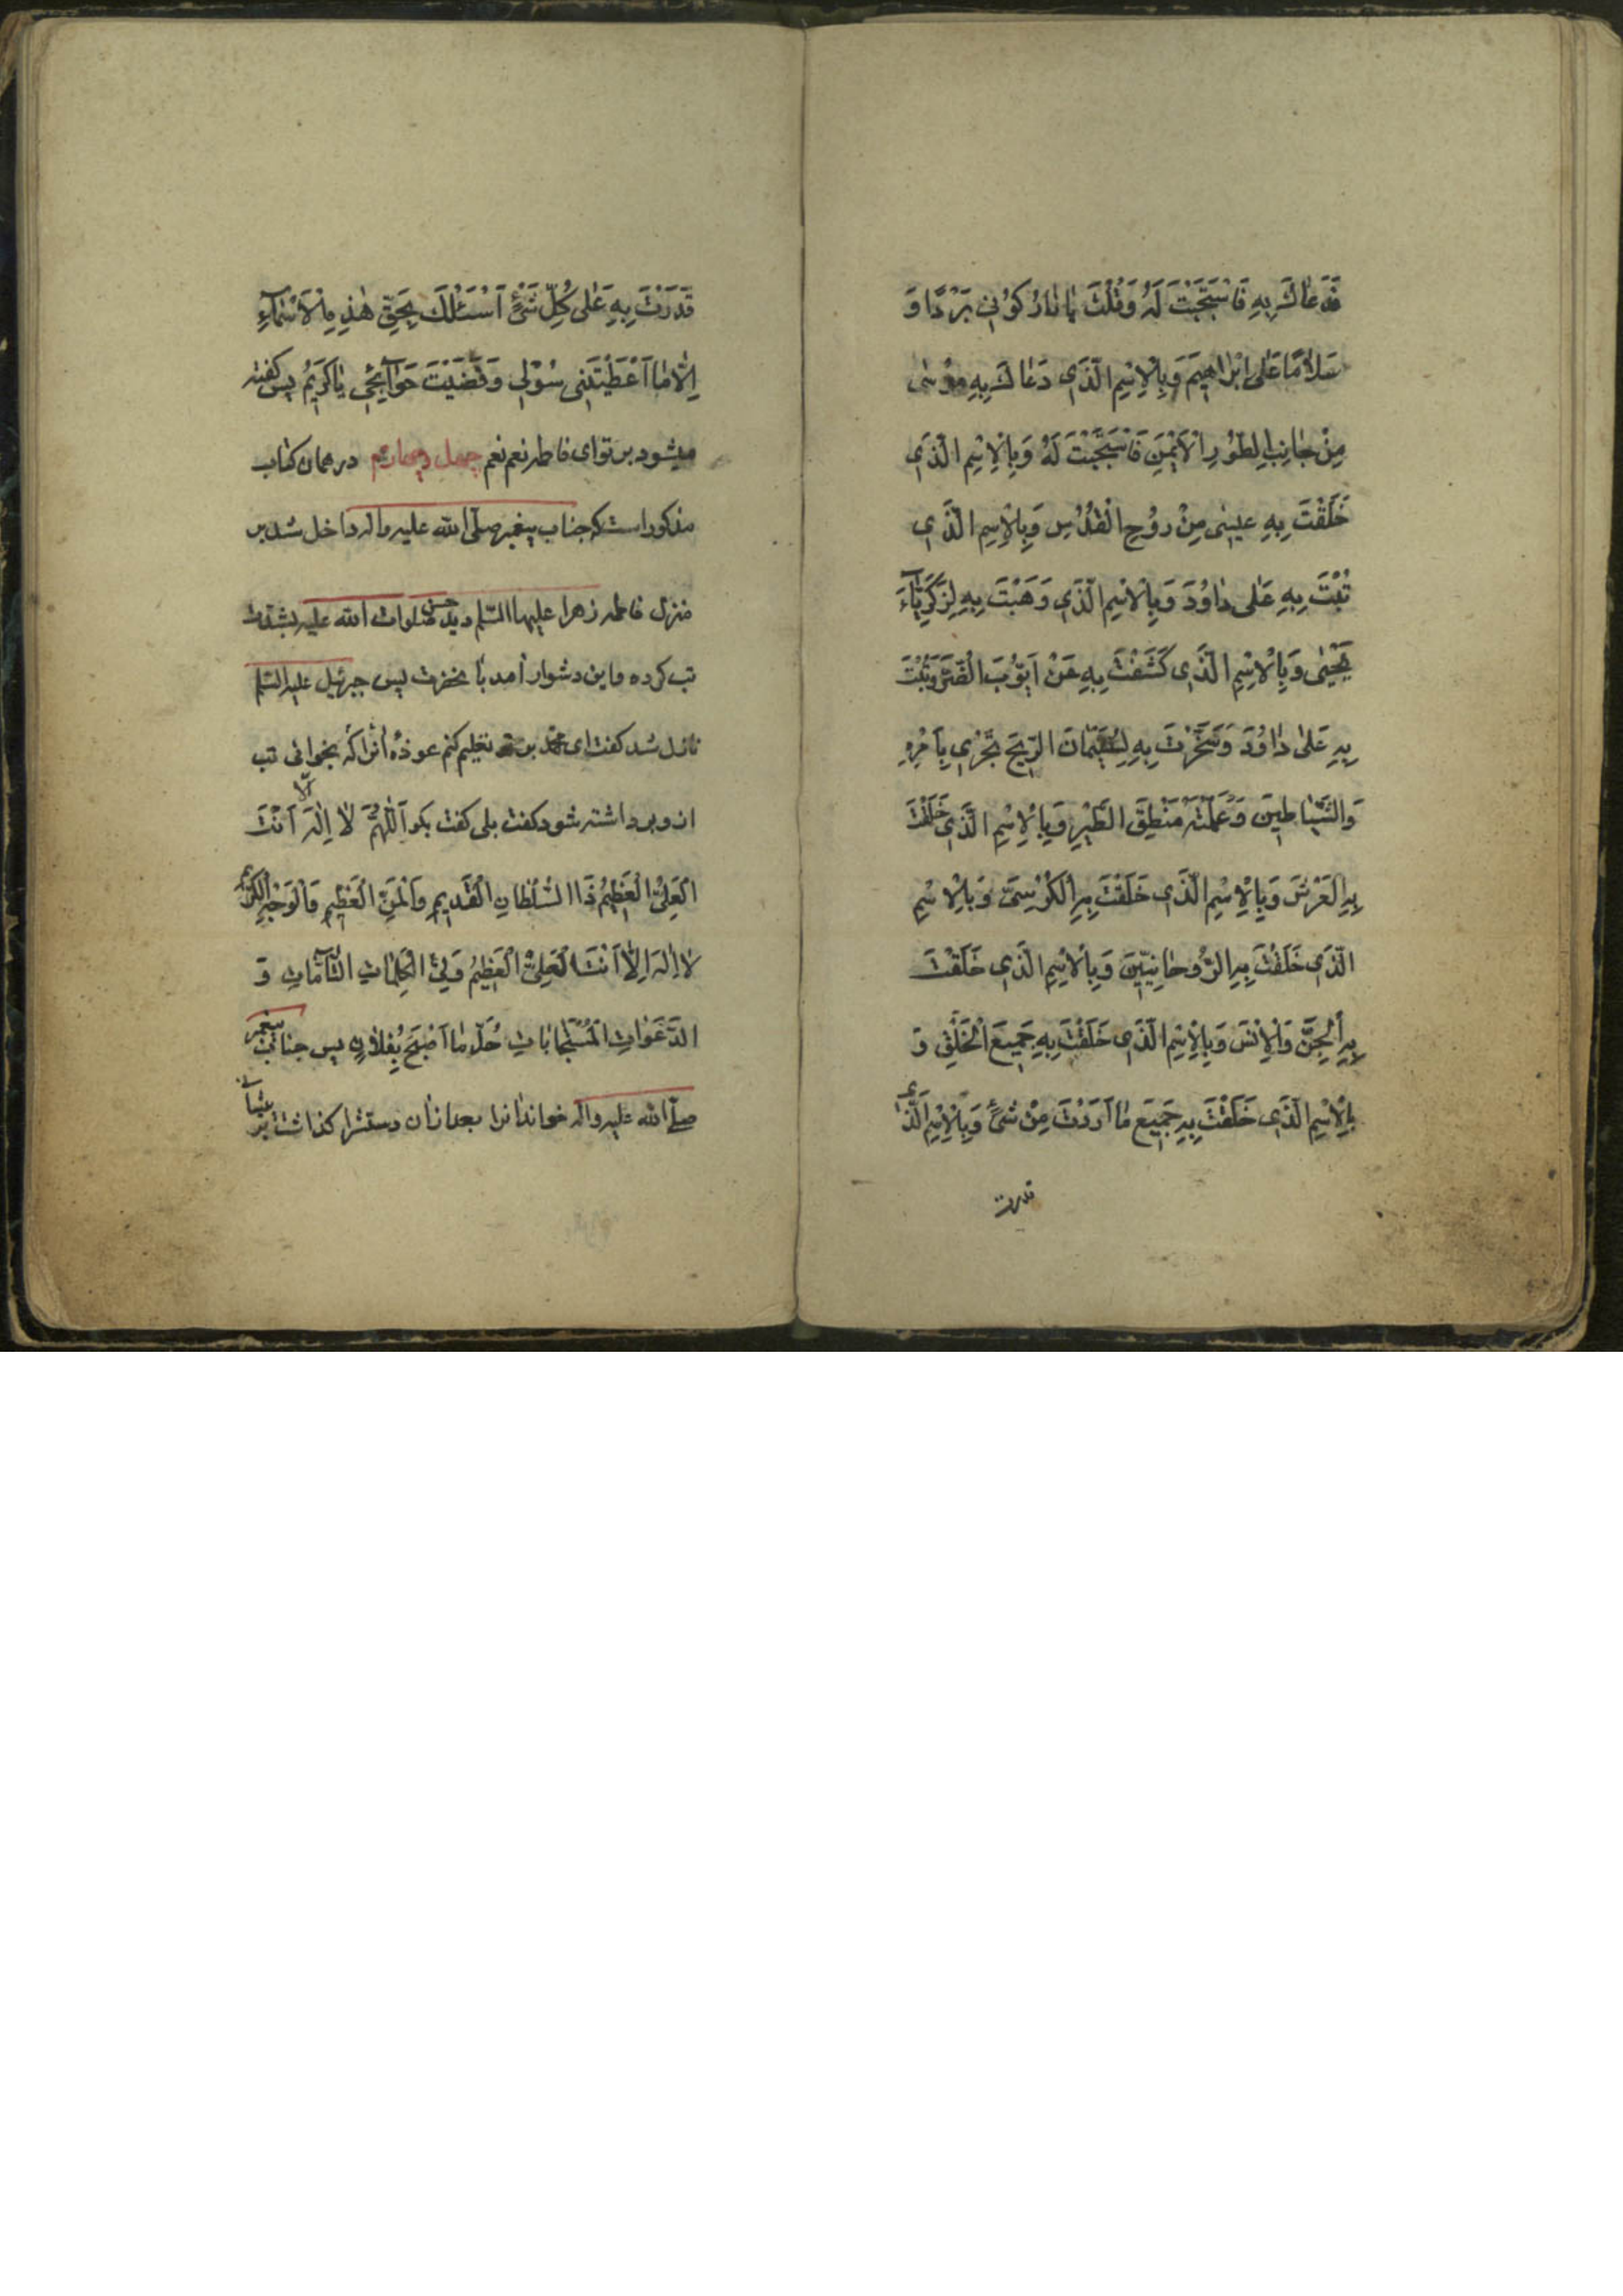 فَدَعَاكَ بِهِ فَاسْتَجَبْتَ لَهُ وَقُلْتَ یَا نَارُ کُوْنِی بَرْدًا وَ
سَلَامًا عَلٰی اِبْرَاهِیمَ وَبِالْاِسْمِ الَّذِی دَعَاكَ بِهِ مُوْسٰی
مِنْ جَانِبِ الطُّوْرِ الْاَیْمَنِ فَاسْتَجَبْتَ لَهُ وَبِالْاِسْمِ الَّذِی
خَلَقْتَ بِهِ عِیسٰی مِنْ رُوْحِ الْقُدُسِ وَبِالْاِسْمِ الَّذِی
تُبْتَ بِهِ عَلٰی دَاوُدَ وَبِالْاِسْمِ الَّذِی وَهَبْتَ بِهِ لِزَکَرِیَّآءَ
یَحْیٰی وَبِالْاِسْمِ الَّذِی کَشَفْتَ بِهِ عَنْ اَیُّوْبَ الضُّرَّ وَتُبْتَ
بِهِ عَلٰی دَاوُدَ وَسَخَّرْتَ بِهِ لِسُلَیْمَانَ الرِّیحَ تَجْرِی بِاَمْرِهِ
وَالشَّیَاطِینَ وَعَلَّمْتَهُ مَنْطِقَ الطَّیْرِ وَبِالْاِسْمِ الَّذِی خَلَقْتَ
بِهِ الْعَرْشَ وَبِالْاِسْمِ الَّذِی خَلَقْتَ بِهِ الْکُرْسِیَّ وَبِالْاِسْمِ
الَّذِی خَلَقْتَ بِهِ الرُّوحَانِیِّینَ وَبِالْاِسْمِ الَّذِی خَلَقْتَ
بِهِ الْجِنَّ وَالْاِنْسَ وَبِالْاِسْمِ الَّذِی خَلَقْتَ بِهِ جَمِیعَ الْخَلْقِ وَ
بِالْاِسْمِ الَّذِی خَلَقْتَ بِهِ جَمِیعَ مَا اَرَدْتَ مِنْ شَیْءٍ وَبِالْاِسْمِ الَّذِی
قدرت
قَدَرْتَ بِهِ عَلٰی کُلِّ شَیْءٍ اَسْئَلُكَ بِحَقِّ هٰذِهِ الْاَسْمَآءِ
اِلَّا مَا اَعْطَیْتَنِی سُؤْلِی وَقَضَیْتَ حَوَآئِجِی یَا کَرِیْمُ پس کفته
میشود بر تو ای فاطمه نعم نعم چهل و چهارم در همان کتاب
مذکور است که جناب پیغمبر صلّی الله علیه واله داخل شد بر
منزل فاطمه زهرا علیها السّلم دید حسن صلوات الله علیه بشدّت
تب کرده و این دشوار آمد بآنحضرت پس جبرئیل علیه السّلم
نازل شد کفت ای محمّد بر تو تعلیم کنم عوذهٔ آنرا که بخوانی تب
از و برداشته شود کفت بلی کفت بکو اَللّٰهُمَّ لَا اِلٰهَ اِلَّا اَنْتَ
الْعَلِیُّ الْعَظِیْمُ ذَا السُّلْطَانِ الْقَدِیمِ وَالْمَنِّ الْعَظِیْمِ وَالْوَجْهِ الْکَرِیْمِ
لَا اِلٰهَ اِلَّا اَنْتَ الْعَلِیُّ الْعَظِیْمُ وَلِیُّ الْکَلِمَاتِ التَّآمَّاتِ وَ
الدَّعَوَاتِ الْمُسْتَجَابَاتِ حُلَّ مَا اَصْبَحَ بِفُلَانٍ پس جناب پیغمبر
صلّی الله علیه واله خواند آنرا بعد ازان دستشرا کذاشت بر